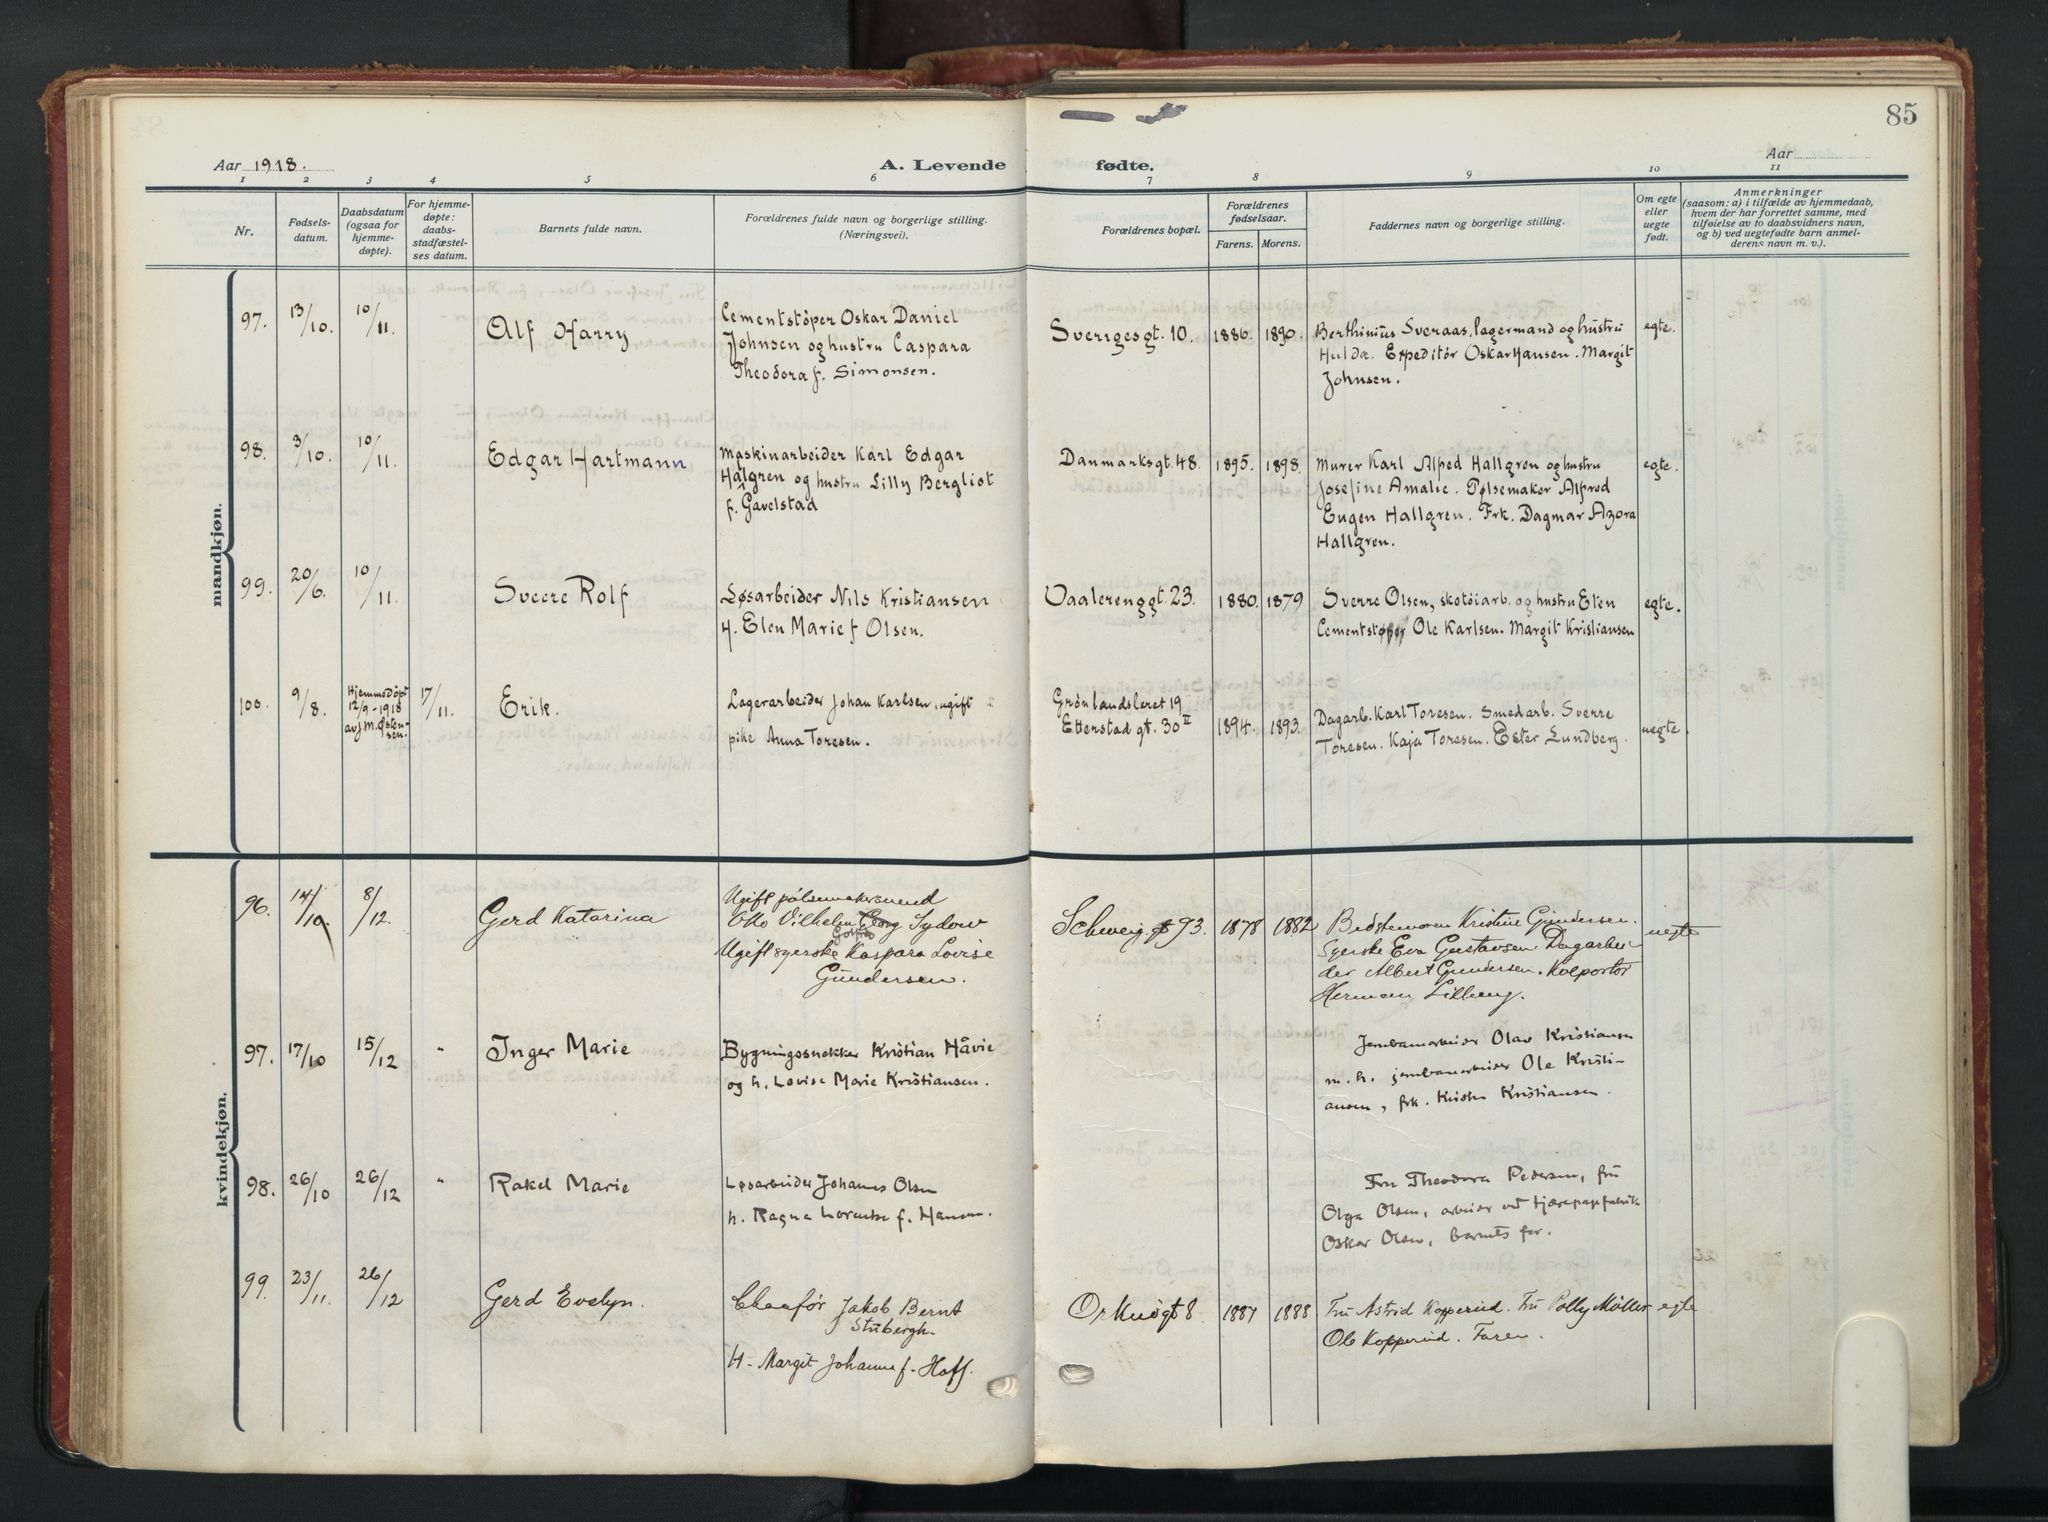 85
Aar 1918. A. Levende fødte. Aar
1 2 3 4 5 6 7 8 9 10 11
Nr.
Fødsels-
datum.
Daabsdatum
(ogsaa for
hjemme-
døpte).
For hjemme-
døpte:
daabs-
stadfæstel-
ses datum.
Barnets fulde navn.
Forældrenes fulde navn og borgerlige stilling.
(Næringsvei).
Forældrenes bopæl.
Forældrenes
fødselsaar.
Farens. Morens.
Faddernes navn og borgerlige stilling.
Om egte
eller
uegte
født.
Anmerkninger
(saasom: a) i tilfælde av hjemmedaab,
hvem der har forrettet samme, med
tilføielse av to daabsvidners navn,
og b) ved uegtefødte barn anmel-
derens navn m. v.).
mandkjøn.
97. 13/10. 10/11. Alf Harry
Cementstöper Oskar Daniel
Johnsen og hustru Caspara
Theodora f. Simonsen.
Sverigesgt. 10. 1886. 1890.
Berthinius Sveraas, lagermand og hustru
Hulda. Expeditör Oskar Hansen. Margit
Johnsen.
egte.
98. 3/10. 10/11. Edgar Hartmann
Maskinarbeider Karl Edgar
Halgren og hustru Lilly Bergliot
f. Gavelstad
Danmarksgt. 48. 1895. 1898.
Murer Karl Alfred Hallgren og hustru
Josefine Amalie. Pølsemaker Alfred
Eugen Hallgren. Frk. Dagmar Azora
Hallgren.
egte.
99. 20/6. 10/11. Sverre Rolf
Løsarbeider Nils Kristiansen
H. Elen Marie f Olsen.
Vaalerenggt. 23. 1880. 1879
Sverre Olsen, skotöiarb. og hustru Elen
Cementstøper Ole Karlsen. Margit Kristiansen
egte.
100. 9/8. Hjemmedöpt
12/9-1918
av J. M. Østen-
sen.
17/11. Erik.
Lagerarbeider Johan Karlsen, ugift
pike Anna Toresen.
Grönlandsleret 19
Etterstad gt. 30 II 1894. 1893.
Dagarb. Karl Toresen. Smedarb. Sverre
Toresen. Kaja Toresen. Ester Lundberg.
uegte.
kvindekjøn.
96. 14/10. 8/12. Gerd Katarina
Ugift pölsemakersvend
Otto Vilhelm Georg Sydow
Ugift syerske Kaspara Lovise
Gundersen.
Schweigt 93. 1878 1882
Bedstemoren Kristine Gundersen.
Syerske Eva Gustavsen. Dagarbei-
der Albert Gundersen. Kolportør
Herman
uegte
97. 17/10 15/12 " Inger Marie
Bygningssnekker Kristian Håvie
og h. Lovise Marie Kristiansen.
Jernbanearbeider Olav Kristiansen
m. h. jernbanearbeider Ole Kristi-
ansen, frk. Kirsten Kristiansen.
98. 26/10 26/12 " Rakel Marie
Løsarbeider Johannes Olsen
h. Ragna Lorentse f. Hansen.
Fru Theodora Pedersen, fru
Olga Olsen, arbeider ved tjærepapfabrik
Oskar Olsen, barnets far.
99. 23/11. 26/12 Gerd Evelyn.
Chaufför Jakob Bernt
Stubergh.
H. Margit Johanne f. Hoff.
Orknögt 8. 1887 1888
Fru Astrid Kopperud. Fru Polly Möller
Ole Kopperud. Faren.
egte